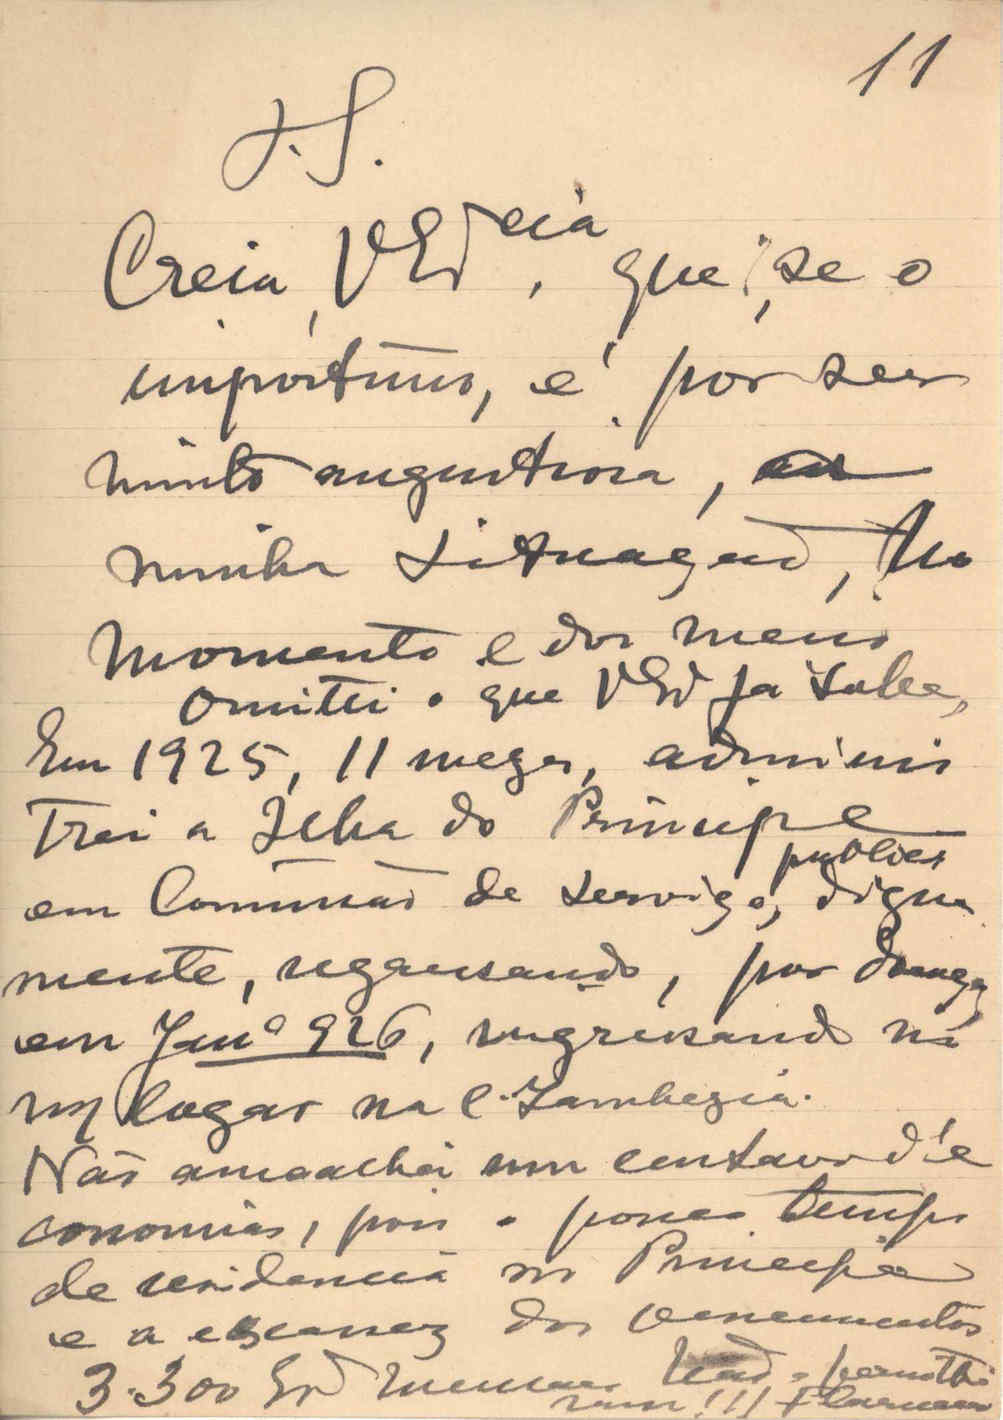 11
J. S.
Creia, VExcia, que, se o
importuno, é por ser
muito angustiosa, a
minha situação, no
momento e dos meus
Omitti o que VEx já sabe,
Em 1925, 11 mezes, adminis
trei a Ilha do Principe
publico
em Commissão de serviço, digna
mente, regressando, por doença
em Janº 926, ingressando no
meu logar na C. Zambezia.
Não amealhei um centavo d'e
conomias, pois o pouco tempo
de residencia no Principe
e a escassez dos vencimentos
3.300 Esc mensaes não o permitti
ram!!!